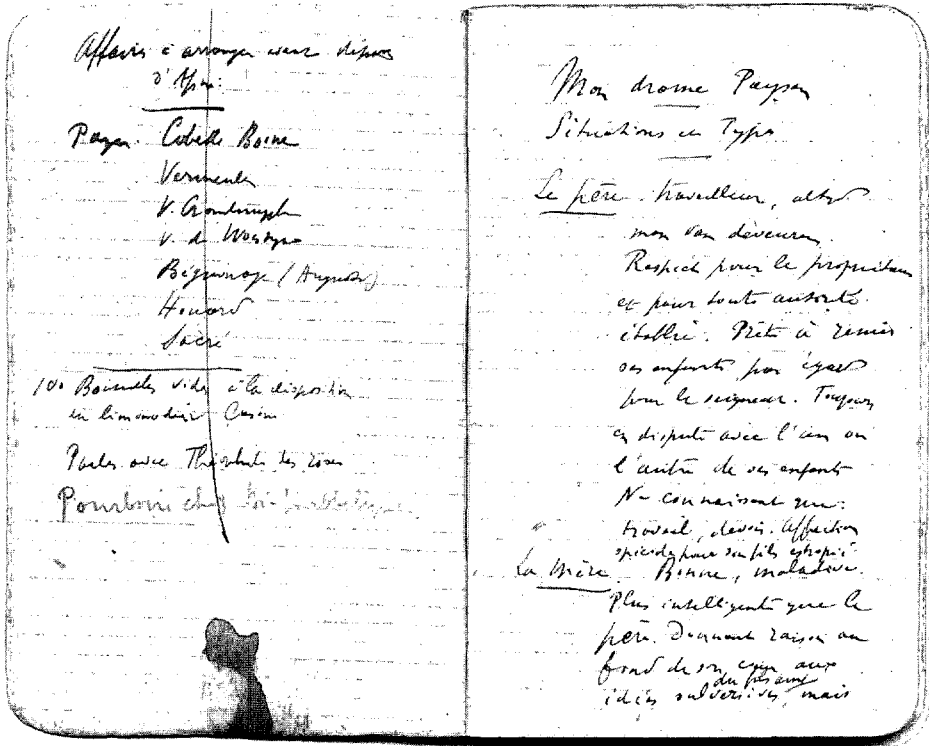 Affaires à arranger avant départ
d'
Payer. Cobelle Boine
Vermeulen
V. Crombrugghe
V. de Woestyne
Béguinage (Augustin)
Howard
Sacré
100 Bouteilles vides à la disposition
du limonadier Casino
Parler avec Théophile des roses
Pourboire chez
Mon drame Paysan
Situations en Types
Le père. travailleur,
mon van deveuren.
Respect pour le propriétaire
et pour toute autorité
établie. Prêt à renier
ses enfants par égard
pour le seigneur. Toujours
en dispute avec l'un ou
l'autre de ses enfants
Ne connaissant que:
travail, devoir. Affection
spéciale pour son fils estropié.
La Mère. Bonne, maladive.
Plus intelligente que le
père. Donnant raison au
fond de son cœur aux
idées subversives du paysan, mais